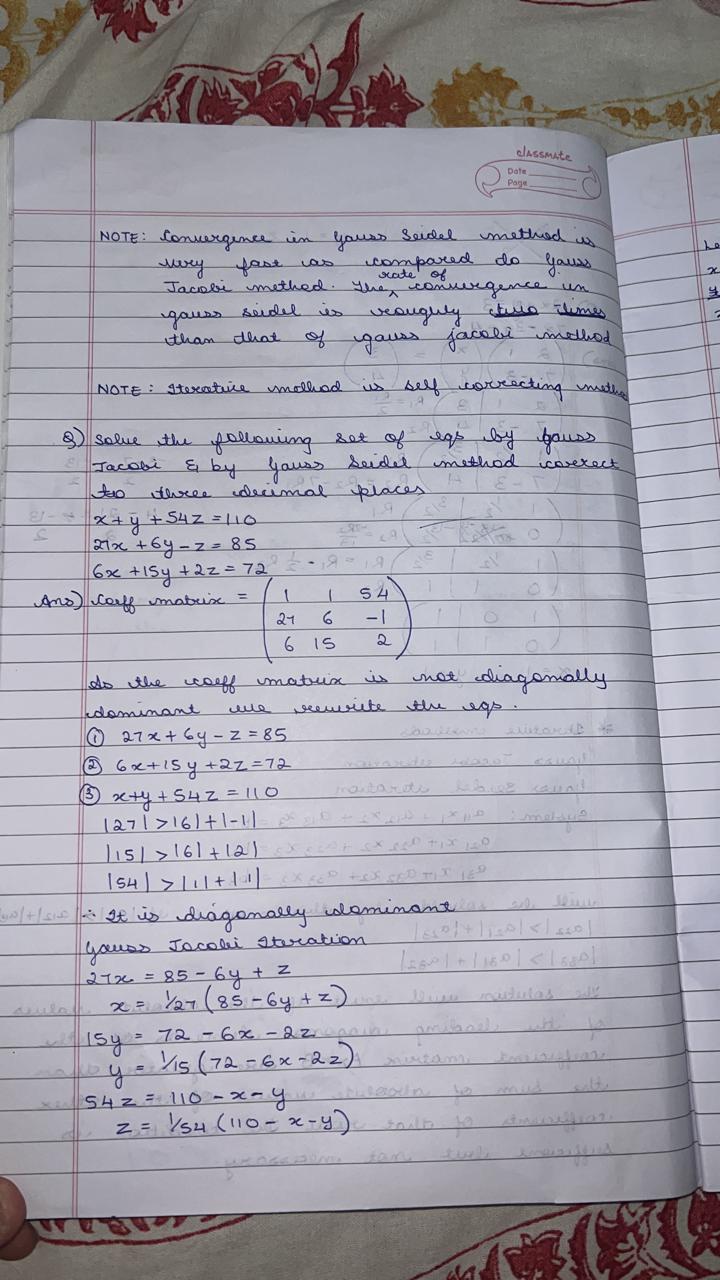 classmate
Date
Page
NOTE: Convergence in Gauss Seidel method is
very fast as compared do Gauss
Jacobi method. The rate of convergence in
gauss seidel is roughly two times
than that of gauss jacobi method
NOTE: Iterative method is self correcting metho
Q) Solve the following set of eqs by gauss
Jacobi & by Gauss Seidel method correct
to three decimal places
x+y+54z=110
27x+6y-z=85
6x+15y+2z=72
Ans) Coeff matrix = ( 1 1 54
27 6 -1
6 15 2 )
As the coeff matrix is not diagonally
dominant we rewrite the eqs.
① 27x+6y-z=85
② 6x+15y+2z=72
③ x+y+54z=110
|27|>|6|+|-1|
|15|>|6|+|2|
|54|>|1|+|1|
∴ It is diagonally dominant
Gauss Jacobi Iteration
27x = 85-6y+z
x = 1/27 (85-6y+z)
15y = 72-6x-2z
y = 1/15 (72-6x-2z)
54z = 110-x-y
z = 1/54 (110-x-y)